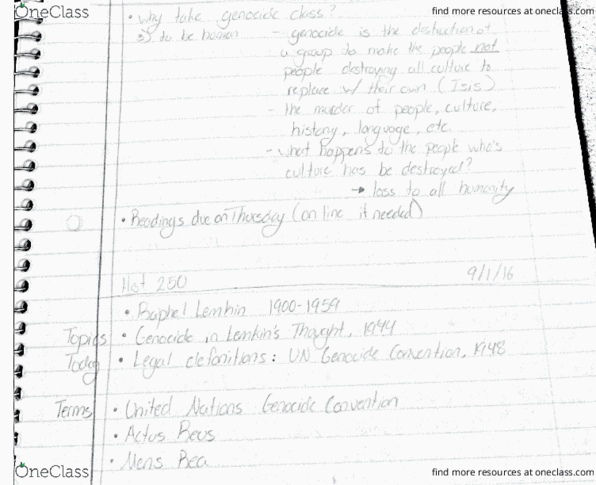 OneClass
find more resources at oneclass.com
• why take genocide class?
3) to be human - genocide is the destruction of
a group to make the people not
people destroying all culture to
replace w/ their own (Isis)
- the murder of people, culture,
history, language, etc.
- what happens to the people who's
culture has be destroyed?
→ loss to all humanity
• Readings due on Thursday (on line if needed)
Hst 250 9/1/16
• Raphel Lemkin 1900-1959
Topics • Genocide in Lemkin's Thought, 1944
Today • Legal definitions: UN Genocide Convention, 1948
Terms • United Nations Genocide Convention
• Actus Reus
• Mens Rea
OneClass
find more resources at oneclass.com